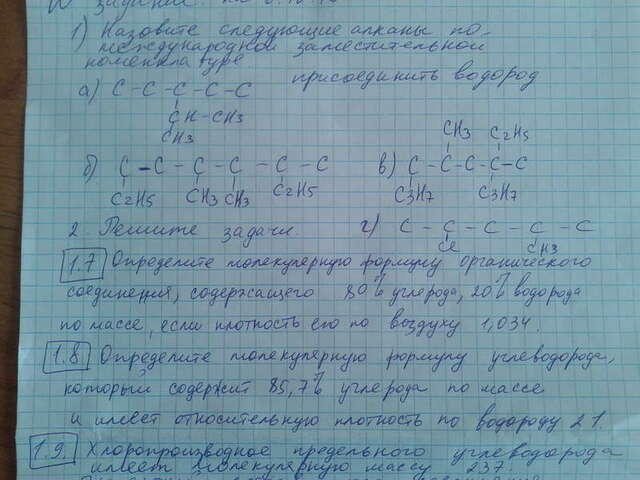 1) Назовите следующие алканы по
международной заместительной
номенклатуре
присоединить водород
а) С - С - С - С - С
СН - СН3
СН3
б) С - С - С - С - С - С
С2Н5 СН3 СН3 С2Н5
СН3 С2Н5
в) С - С - С - С - С
С3Н7 С3Н7
2. Решите задачи.
г) С - С - С - С - С
Cl СН3
1.7 Определите молекулярную формулу органического
соединения, содержащего 80% углерода, 20% водорода
по массе, если плотность его по воздуху 1,034.
1.8. Определите молекулярную формулу углеводорода,
который содержит 85,7% углерода по массе
и имеет относительную плотность по водороду 21.
1.9. Хлоропроизводное предельного углеводорода
имеет молекулярную массу 237.